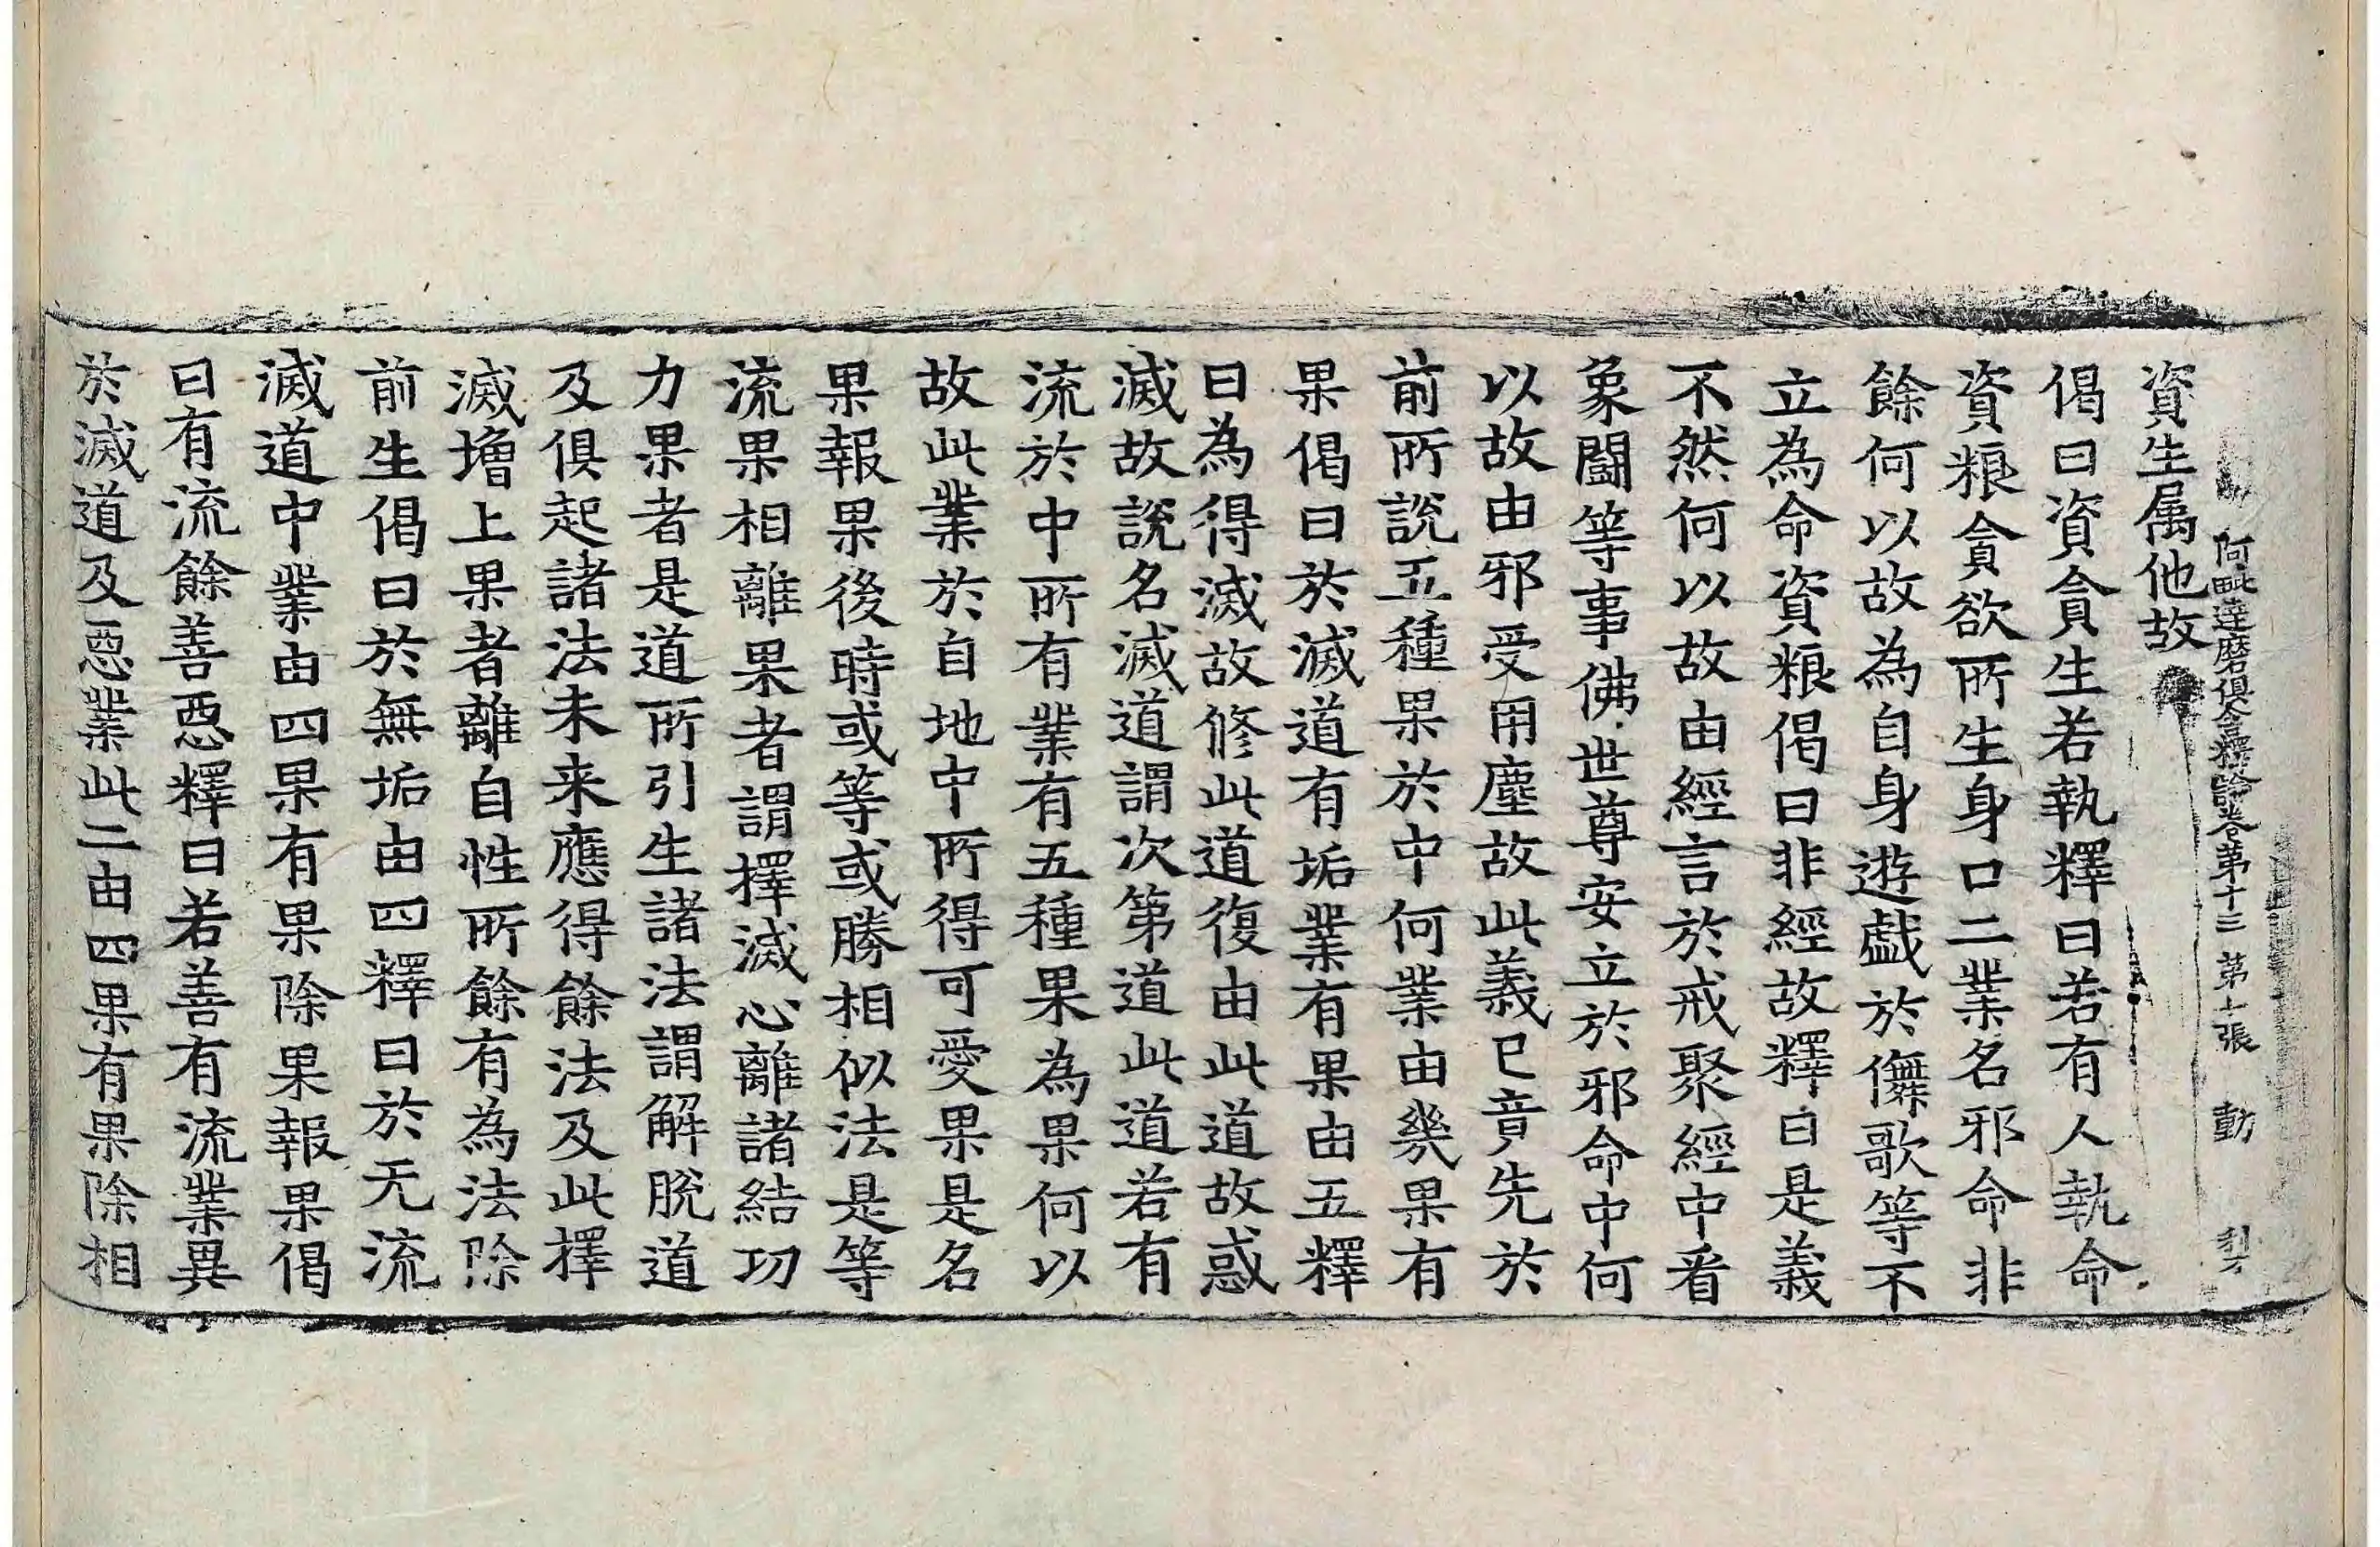 阿毗達磨俱舍釋論卷第十三 第十張 動
資生属他故
偈曰資貪生若執釋曰若有人執命
資粮貪欲所生身口二業名邪命非
餘何以故為自身遊戲於儛歌等不
立為命資粮偈曰非經故釋曰是義
不然何以故由經言於戒聚經中看
象鬪等事佛世尊安立於邪命中何
以故由邪受用塵故此義已竟先於
前所說五種果於中何業由幾果有
果偈曰於滅道有垢業有果由五釋
曰為得滅故修此道復由此道故惑
滅故說名滅道謂次第道此道若有
流於中所有業有五種果為果何以
故此業於自地中所得可愛果是名
果報果後時或等或勝相似法是等
流果相離果者謂擇滅心離諸結功
力果者是道所引生諸法謂解脫道
及俱起諸法未来應得餘法及此擇
滅增上果者離自性所餘有為法除
前生偈曰於無垢由四釋曰於无流
滅道中業由四果有果除果報果偈
曰有流餘善惡釋曰若善有流業異
於滅道及惡業此二由四果有果除相